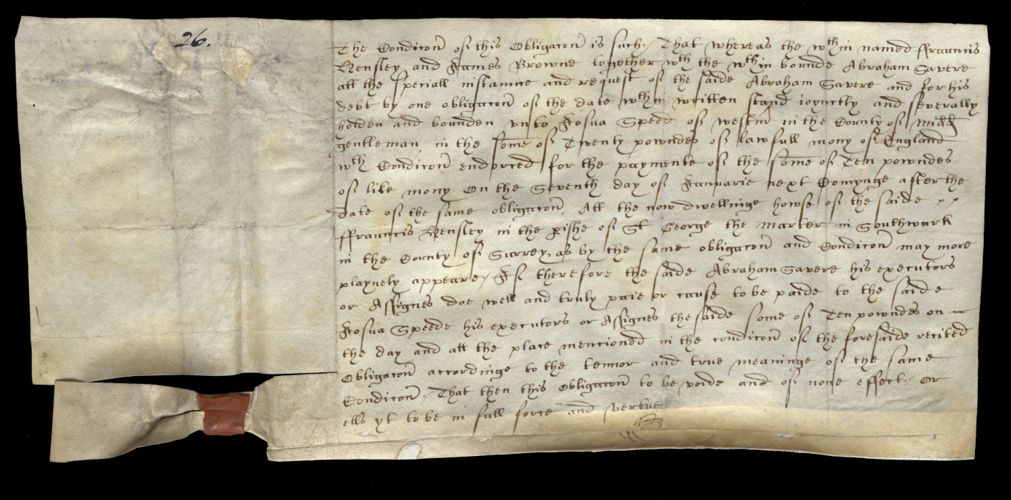 26.
The Condicon of this Obligacon is such. That whereas the wthin named ffrauncis
Hensley and James Browne together wth the wthin bounde Abraham Savere
att the speciall instannce and request of the saide Abraham Savere and for his
debt by one obligacon of the date wthin written stand ioynctly and severally
holden and bounden vnto Josua Speed of westm in the County of midd
gentleman, in the some of Twenty powndes of lawfull mony of England
wth Condicon endorced for the paymente of the some of Tenn powndes
of like mony On the Seventh day of Januarie next Comynge after the
date of the same obligacon, Att the now dwellinge howse of the saide
ffrauncis Hensley in the pishe of St George the marter in Southwark
in the County of Surrey, as by the same obligacon and Condicon may more
playnely appeare. If therefore the saide Abraham Savere his executors
or Assignes doe well and truly paie or cause to be paide to the saide
Josua Speede his executors or Assignes the saide some of Ten powndes on
the day and att the place mencioned in the condicon of the foresaide recited
Obligacon accordinge to the tennor and true meaninge of the same
Condicon. That then this Obligacon to be voide and of none effect. Or
ells yt to be in full force and vertue